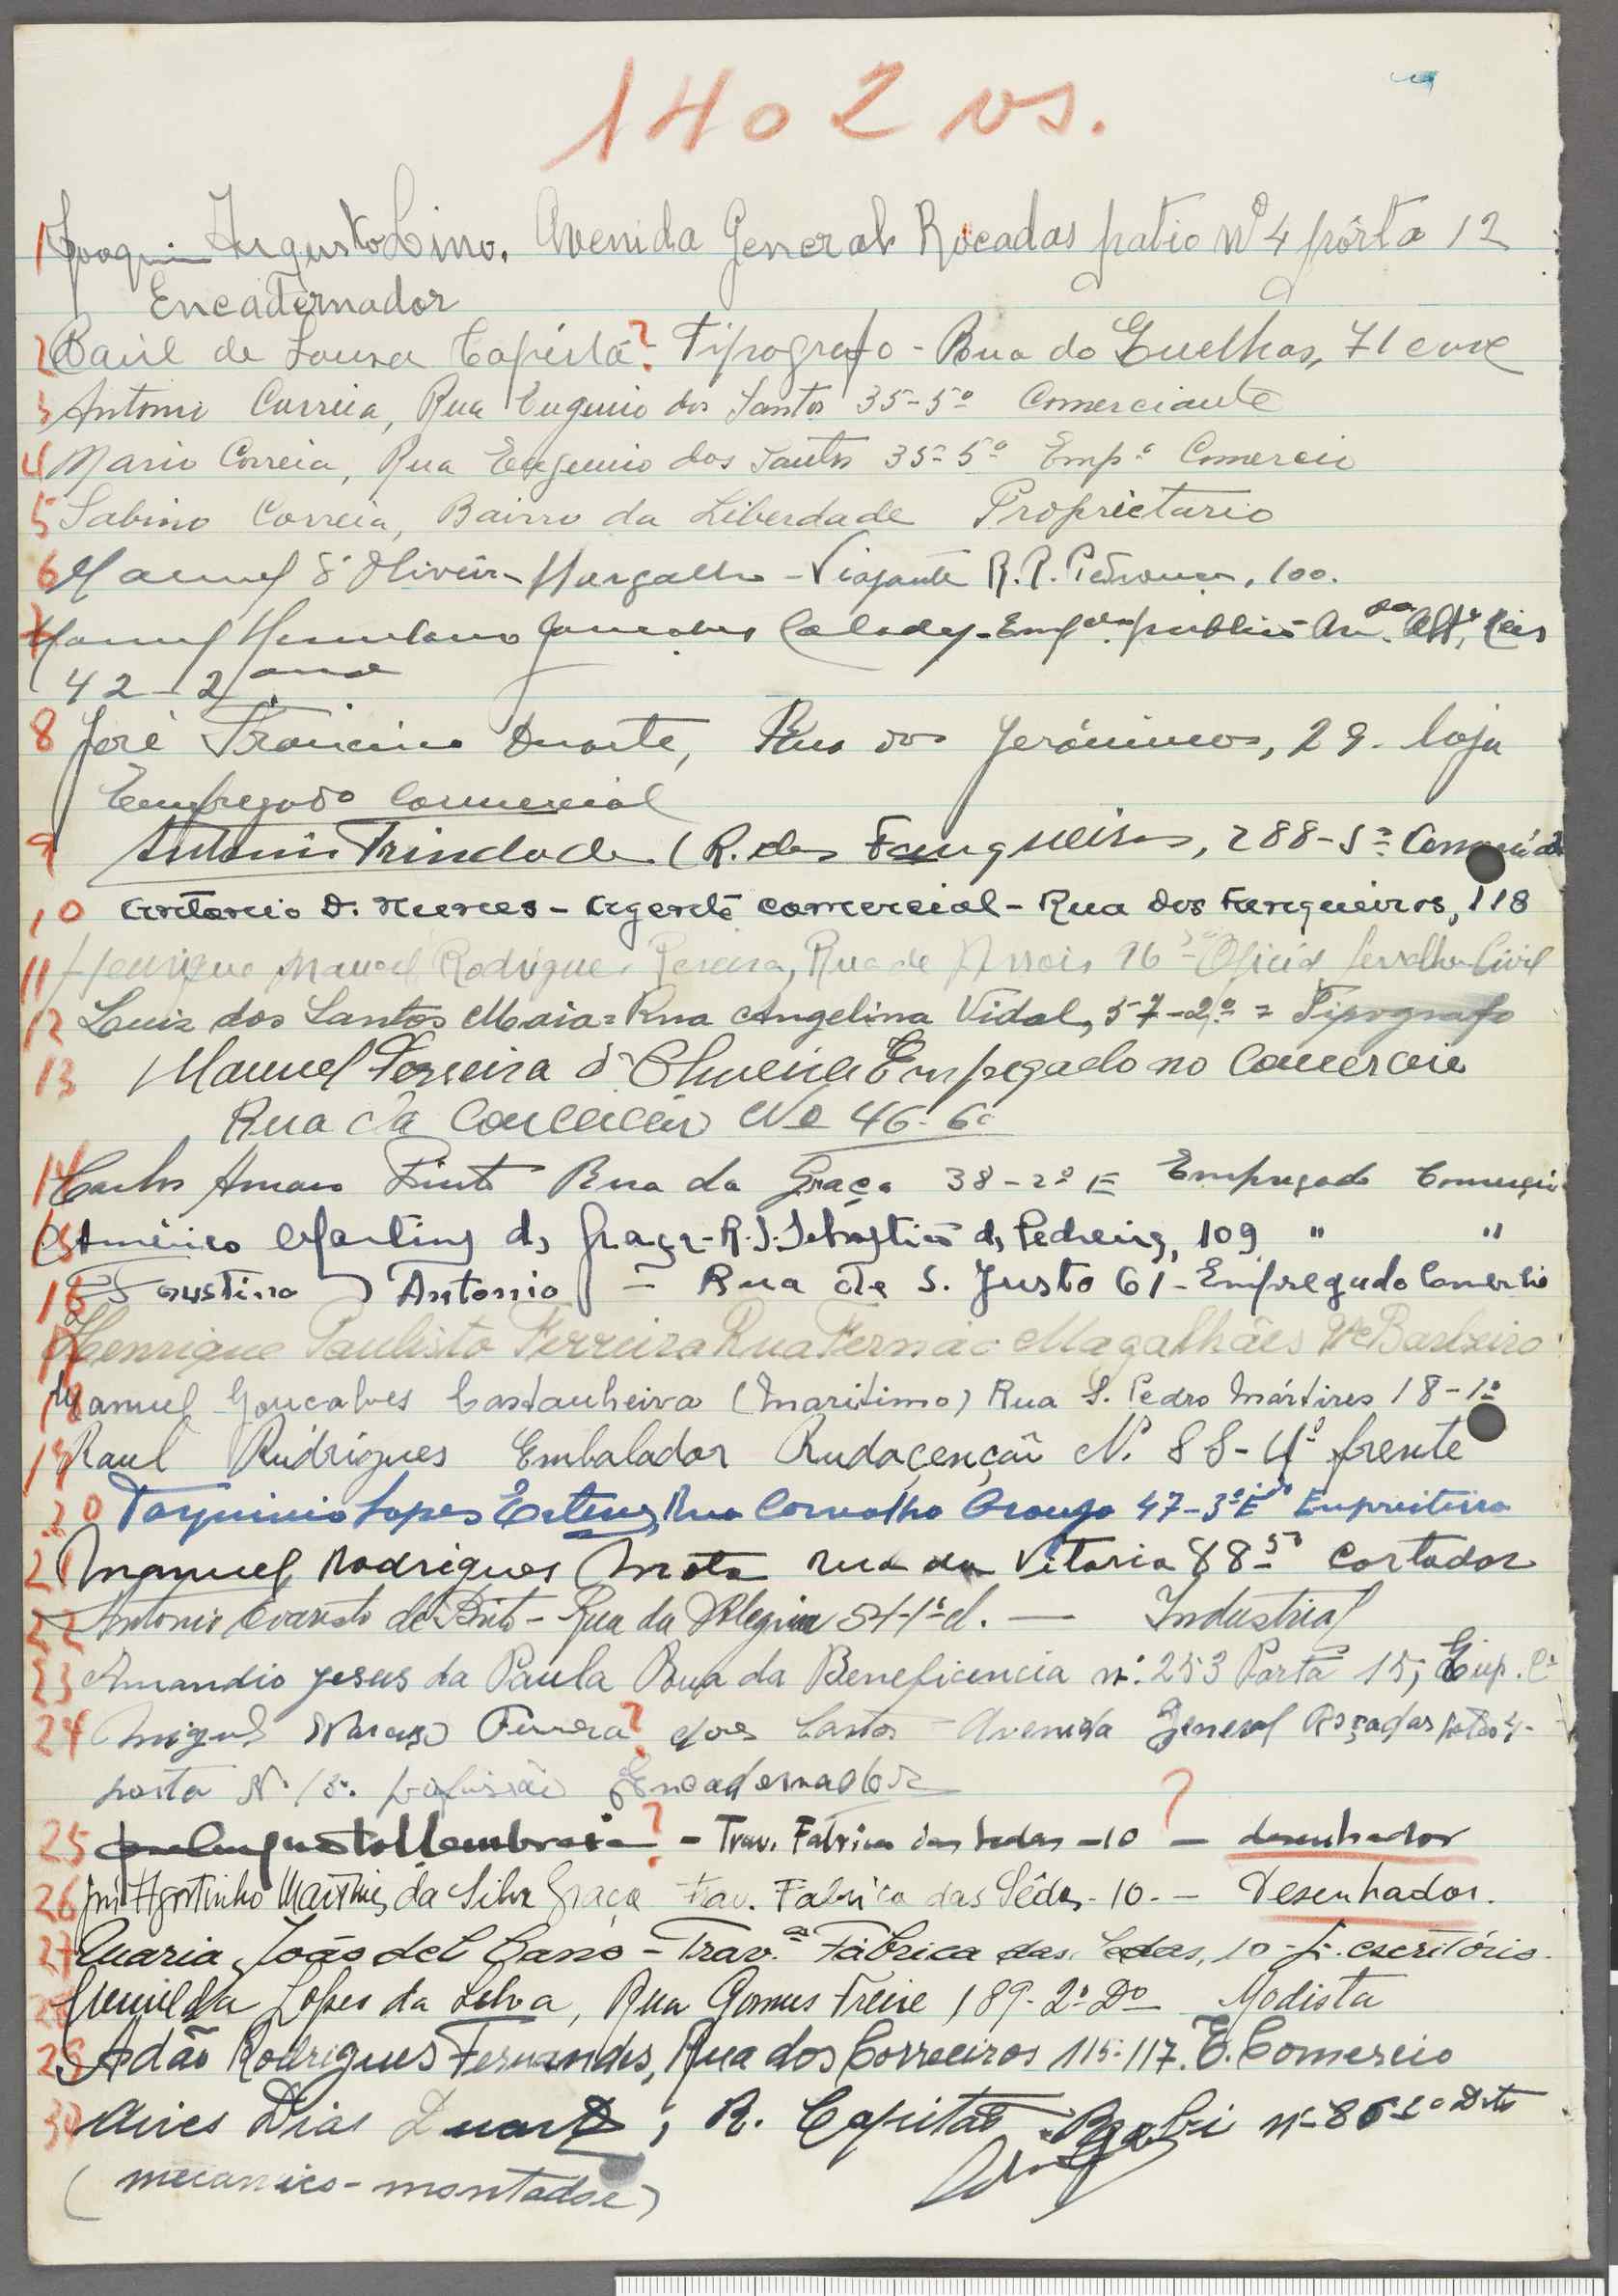 1402 vs.
1 Joaquim Augusto Lino. Avenida General Roçadas patio nº 4 pôrta 12
Encadernador
2 Raúl de Sousa ? Tipografo - Rua do Guelhas, 71 cave
3 Antonio Correia, Rua Eugenio dos Santos 35-5º Comerciante
4 Mario Correia, Rua Eugenio dos Santos 35-5º Empº Comercio
5 Sabino Correia, Bairro da Liberdade Proprietario
6 Manuel d'Oliveira Margalho - Viajante R. P. Pedrouços, 100.
7 Manuel Herculano publico Reis
42-2
8 José Francisco Duarte, Rua dos Jerónimos, 29. loja
Empregado Comercial
9 Antonio Trindade (R. dos Fanqueiros, 288-5º
10 Antonio D. Nunes - Agente comercial - Rua dos Fanqueiros, 118
11 Henrique Manuel Rodrigues Pereira, Rua de Arroios 16 Oficial serralheiro Civil
12 Luiz dos Santos Maia = Rua Angelina Vidal, 57-2º = Tipografo
13 Manuel Ferreira d'Oliveira Empegado no Comercio
Rua da Conceicão Nº 46-6º
14 Carlos Amaro Pinto Rua da Graça 38-2º E Empregado Comercio
15 Américo Martins da Graça - R. S. Sebastião da Pedreira, 109 " "
16 Faustino Antonio - Rua de S. Justo 61 - Empregado Comercio
17 Henrique Paulista Ferreira Rua Fernão Magalhães Barbeiro
18 Manuel Gonçalves Castanheira (Maritimo) Rua S. Pedro Mártires 18-1º
19 Raul Rudrigues Embalador Rudaçençaõ Nº 88-4º frente
20 Tarquinio Lopes Esteves, Rua Carvalho Araujo 47-3º E Empreiteiro
21 Manuel Rodrigues Mota rua da Vitoria 88-5º Cortador
22 Antonio Evaristo de Brito - Rua da Alegria 54-1º d. — Industrial
23 Amandio Jesus da Paula Rua da Beneficencia nº. 253 Porta 15, Emp. Cº
24 Miguel Ferrera? dos Santos - Avenida General Roçadas patio 4-
porta Nº 13. profissão Encadernador
25 ? - Trav. Fabrica das Sedas - 10 ? - desenhador
26 José Agostinho Martins da Silva Graça Trav. Fabrica das Sêdas - 10. - Desenhador.
27 Maria João del Cano - Travª. Fábrica das Sedas, 10 - escritório.
28 Lopes da Silva, Rua Gomes Freire 189-2º Dº Modista
29 Adão Rodrigues Fernandes, Rua dos Correeiros 115-117. E. Comercio
30 Aires Dias Duarte, R. Capitão nº 86 Dto
(mecanico-montador)